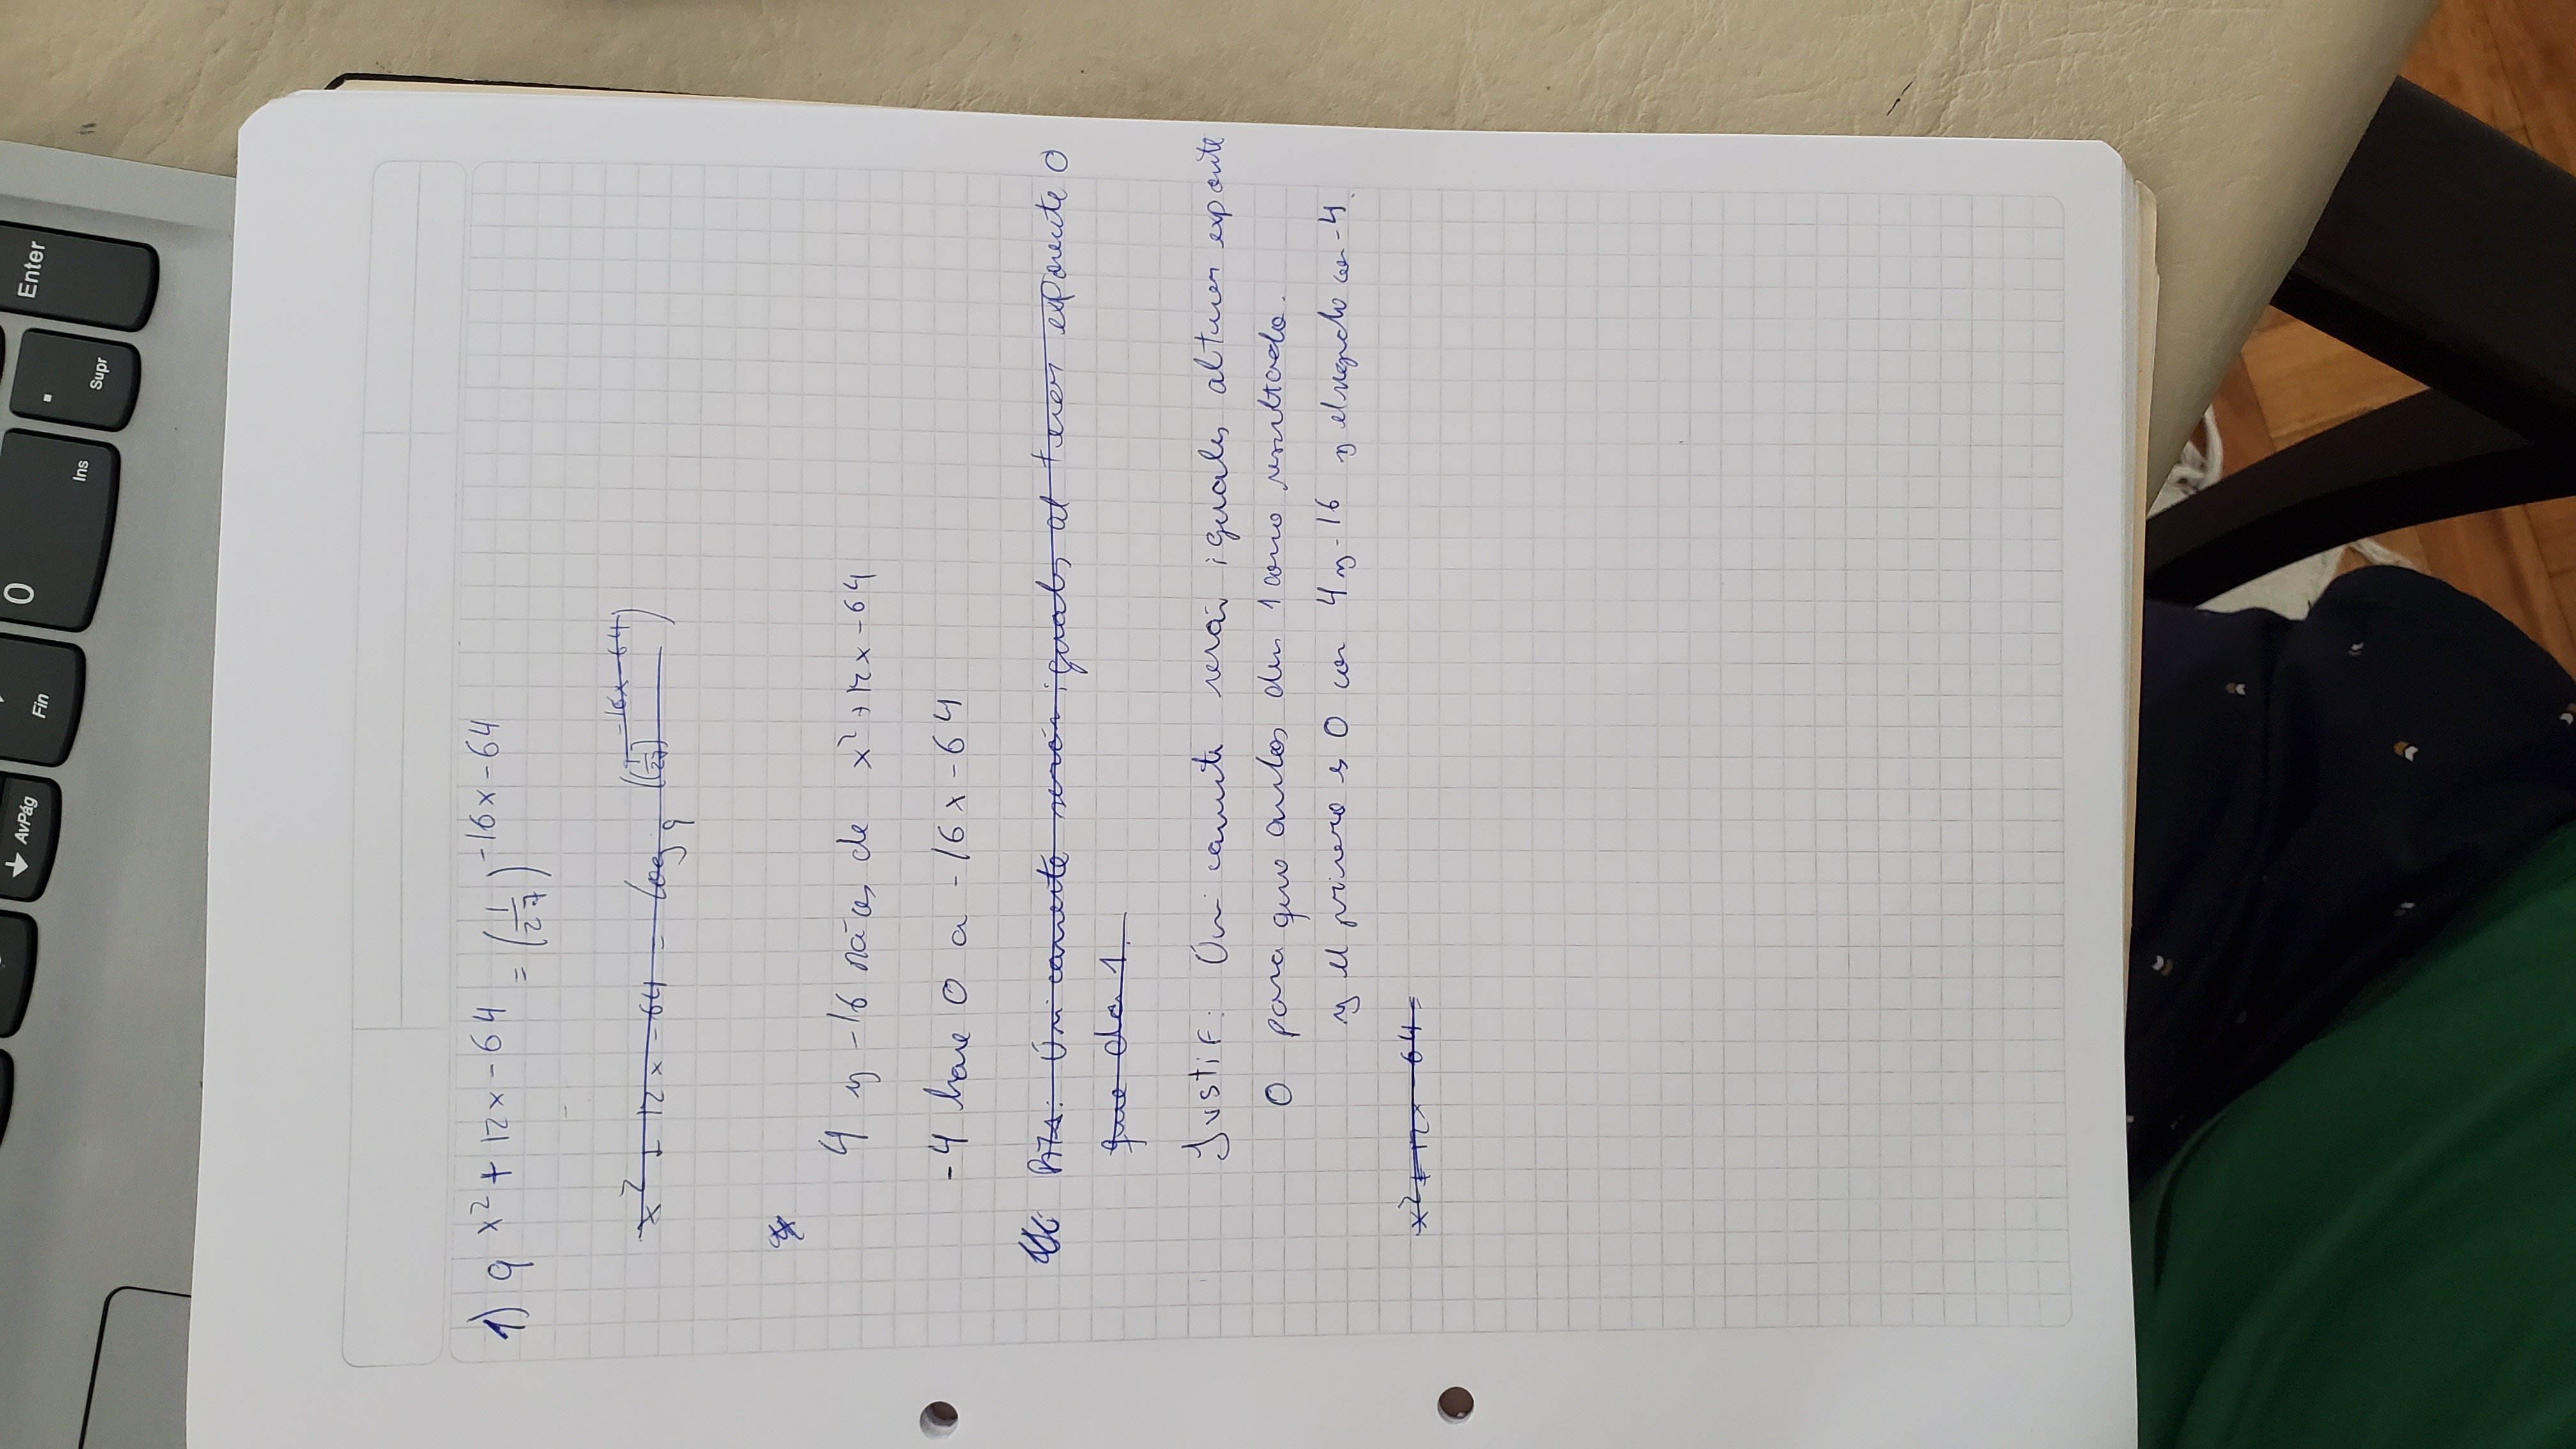 ↓ AvPág
Fin
0
Ins
.
Supr
Enter
1) 9^(x²+12x-64) = (1/27)^(-16x-64)
x²+12x-64 = log₉ ((1/27)^(-16x-64))
4 y -16 raíces de x²+12x-64
-4 hace 0 a -16x-64
Rta: Únicamente serán iguales al tener exponente 0
que da 1.
Justif: Únicamente serán iguales al tener exponente
0 para que ambos den 1 como resultado.
y el primero es 0 con 4 y -16 y el segundo con -4.
x²+12x-64=